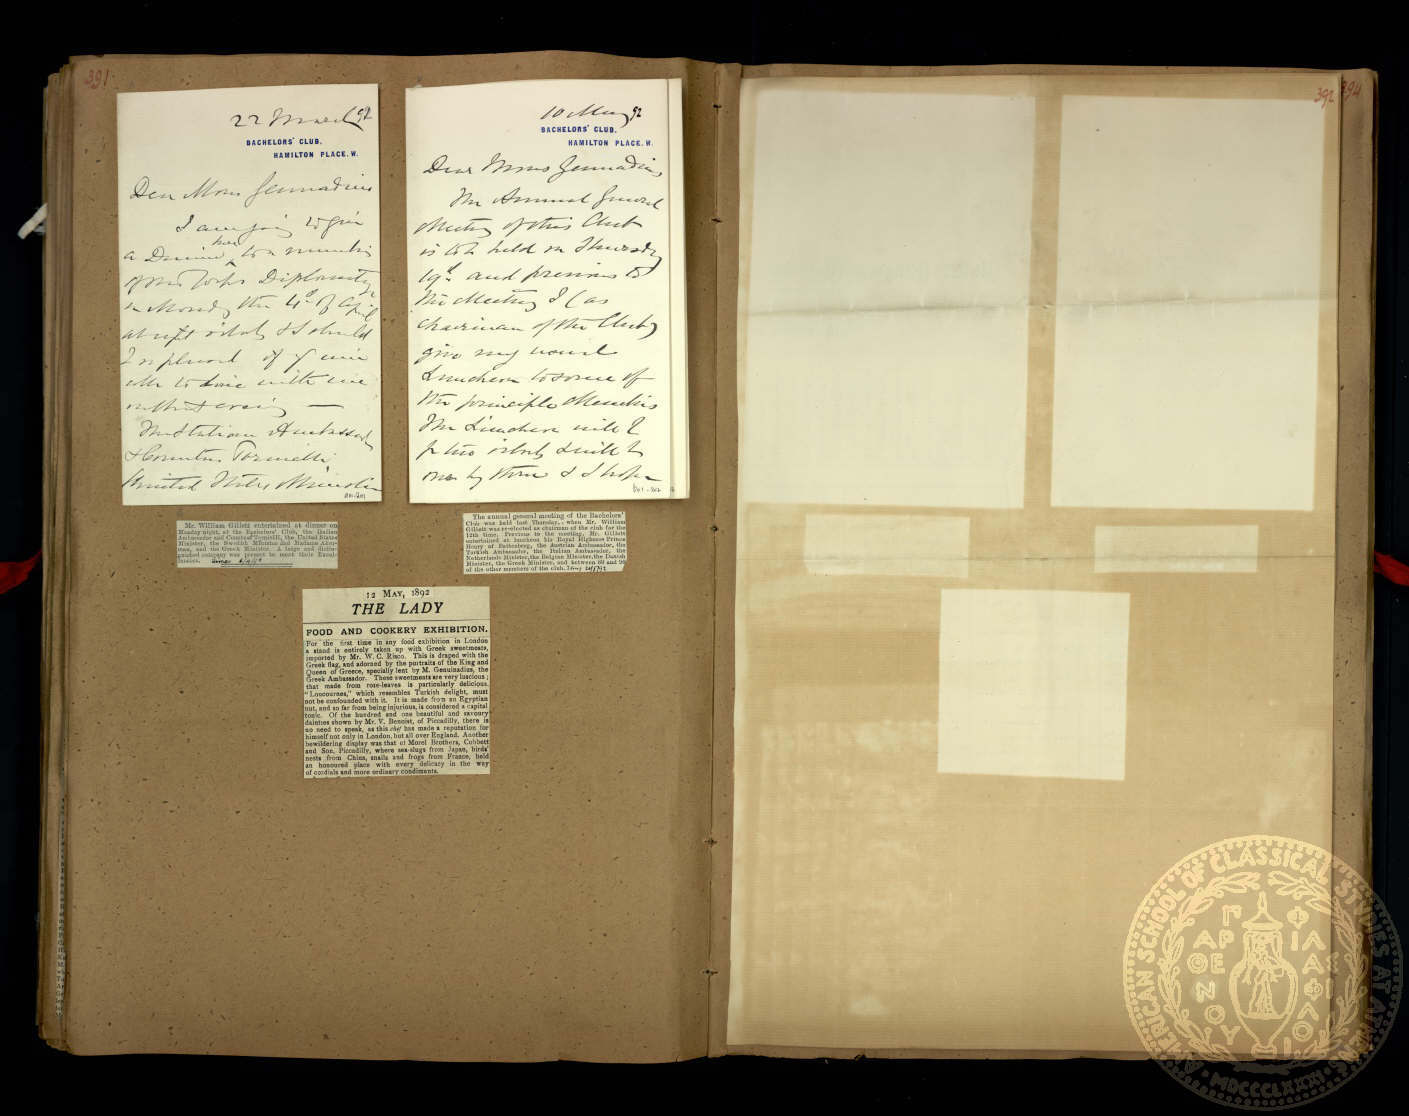 391
22 March 92
BACHELORS' CLUB.
HAMILTON PLACE. W.
Dear Mons Gennadius
I am going to give
a Dinner here to a number
of the Corps Diplomatique
on Monday the 4th of April
at eight o'clock & I should
dine with me
on that evening —
The Italian Ambassador
& Countess Tornielli
United States Minister
10 May 92
BACHELORS' CLUB.
HAMILTON PLACE. W.
Dear Mons Gennadius,
The Annual General
Meeting of this Club
is to be held on Thursday
19th and previous to
the Meeting I (as
Chairman of the Club)
give my usual
Luncheon to some of
the principle Members
The Luncheon will be
for two o'clock & will be
over by three & I hope
Mr. William Gillett entertained at dinner on
Monday night, at the Bachelors' Club, the Italian
Ambassador and Countess Tornielli, the United States
Minister, the Swedish Minister and Madame Åker-
man, and the Greek Minister. A large and distin-
guished company was present to meet their Excel-
lencies.
The annual general meeting of the Bachelors'
Club was held last Thursday, when Mr. William
Gillett was re-elected as chairman of the club for the
12th time. Previous to the meeting, Mr. Gillett
entertained at luncheon his Royal Highness Prince
Henry of Battenberg, the Austrian Ambassador, the
Turkish Ambassador, the Italian Ambassador, the
Netherlands Minister, the Belgian Minister, the Danish
Minister, the Greek Minister, and between 80 and 90
of the other members of the club.
12 MAY, 1892
THE LADY
FOOD AND COOKERY EXHIBITION.
For the first time in any food exhibition in London
a stand is entirely taken up with Greek sweetmeats,
imported by Mr. W. C. Risco. This is draped with the
Greek flag, and adorned by the portraits of the King and
Queen of Greece, specially lent by M. Genuinadius, the
Greek Ambassador. These sweetmeats are very luscious;
that made from rose-leaves is particularly delicious.
"Loucoumea," which resembles Turkish delight, must
not be confounded with it. It is made from an Egyptian
nut, and so far from being injurious, is considered a capital
tonic. Of the hundred and one beautiful and savoury
dainties shown by Mr. V. Benoist, of Piccadilly, there is
no need to speak, as this chef has made a reputation for
himself not only in London, but all over England. Another
bewildering display was that of Morel Brothers, Cobbett
and Son, Piccadilly, where sea-slugs from Japan, birds'
nests from China, snails and frogs from France, held
an honoured place with every delicacy in the way
of cordials and more ordinary condiments.
392
394
AMERICAN SCHOOL OF CLASSICAL STUDIES AT ATHENS
MDCCCLXXXI